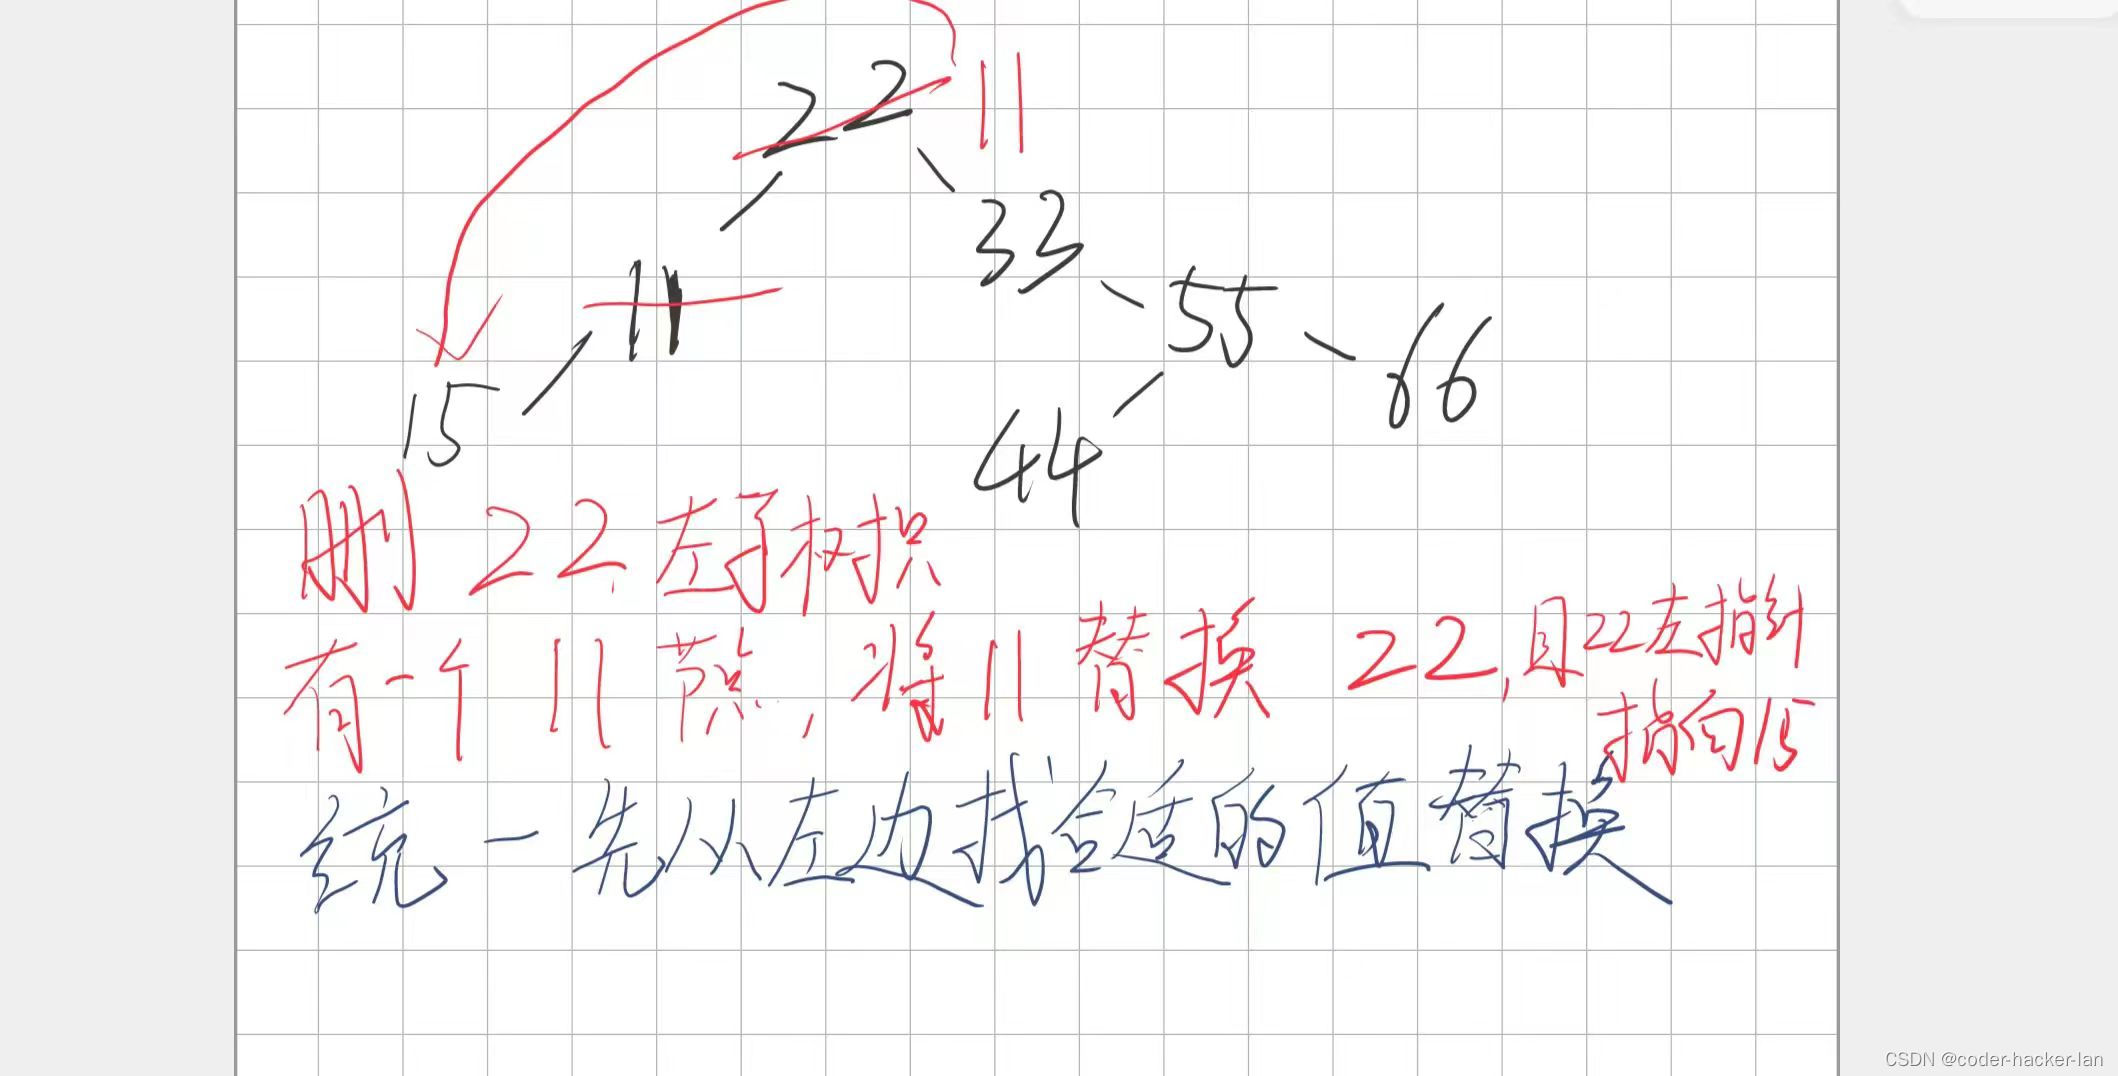 22 11
11 33
15 55 66
44
删 22 左子树只
有一个 11 节点, 将 11 替换 22, 且22左指针
指向15
统一先从左边找合适的值替换
CSDN @coder-hacker-lan